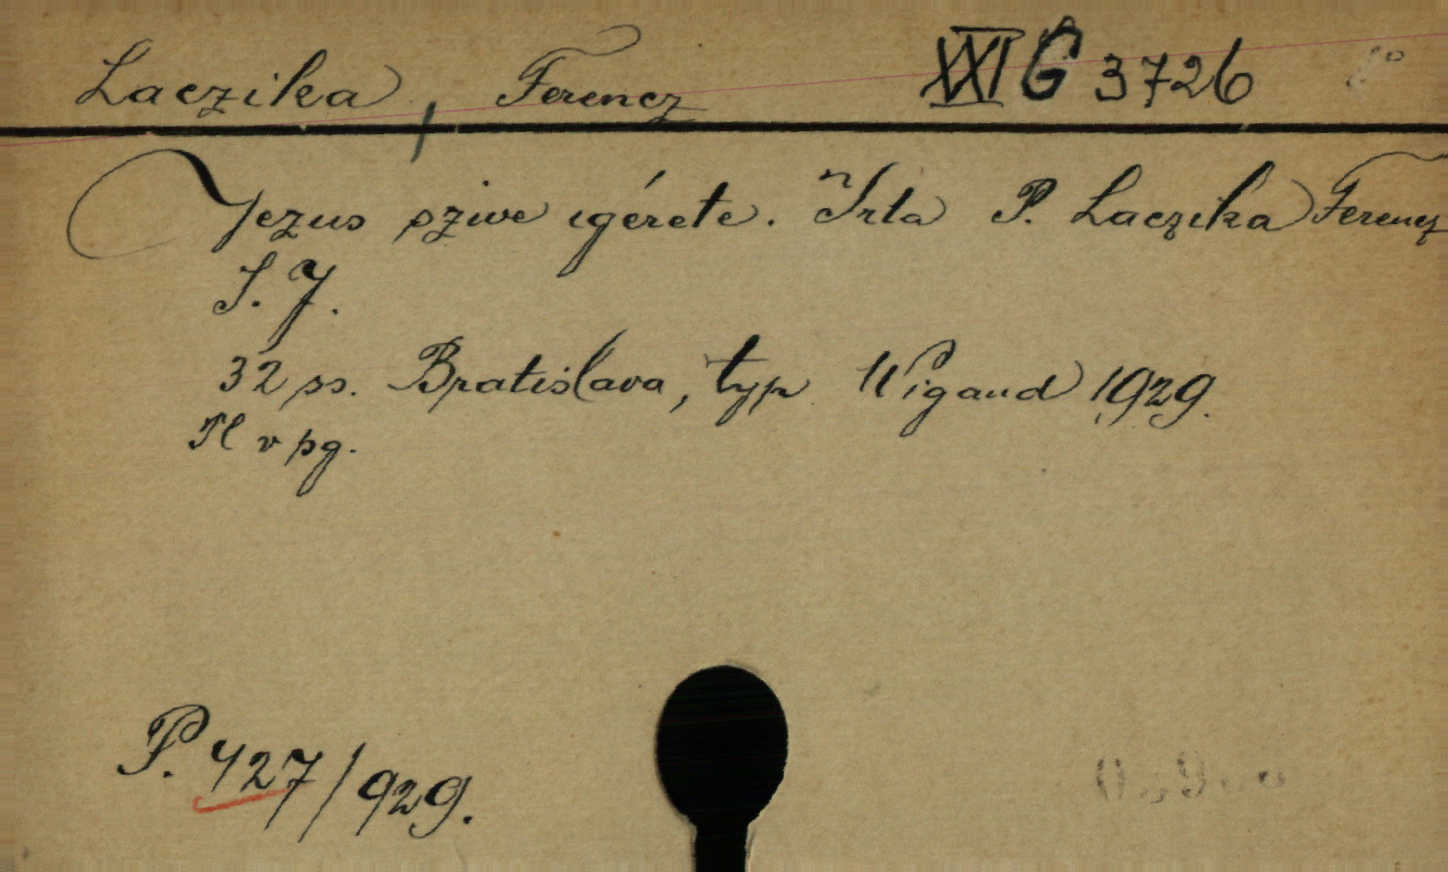 Laczika, Ferencz XXI G 3726
Jezus szive igérete. Irta P. Laczika Ferencz
S. J.
32 ss. Bratislava, typ Wigand 1929.
Pl v pg.
P. 427/929.